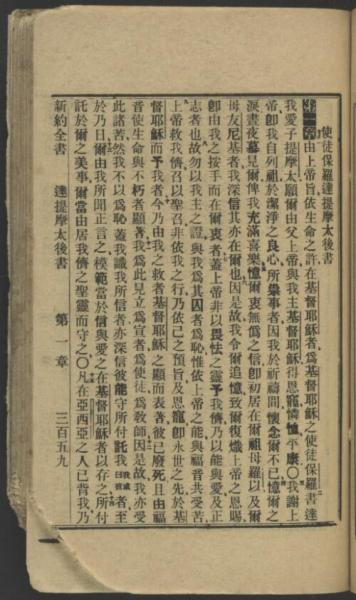 使徒保羅達提摩太後書
第一章由上帝旨依生命之許在基督耶穌者爲基督耶穌之使徒保羅書達
我愛子提摩太願爾由父上帝與我主基督耶穌得恩寵憐恤平康〇我謝上
帝卽我自列祖於潔淨之良心所崇事者因我於祈禱間懷念爾不已憶爾之
淚晝夜慕見爾俾我充滿喜樂憶爾衷無僞之信卽初居在爾祖母羅以及爾
母友尼基者我深信其亦在爾也因是故我令爾追憶致爾復熾上帝之恩賜
卽由我之按手而在爾衷者蓋上帝非以畏怯之靈予我儕乃以能與愛及正
志者也故勿以我主之證與我爲其囚者爲恥惟依上帝之能與福音共受苦
上帝救我儕召以聖召非依我之行乃依己之預旨及恩寵卽永世之先於基
督耶穌而予我者今乃由我之救者基督耶穌之顯而表著彼已廢死且由福
音使生命與不朽者顯著我爲此見立爲宣者爲使徒爲敎師因是故我亦受
此諸苦然我不以爲恥蓋我識我所信者亦深信彼能守所付託我者至
於乃日由我所聞正言之模範當於信與愛之在基督耶穌者以存之所付
託於爾之美事爾當由居我儕之聖靈而守之〇凡在亞西亞之人已背我乃
新約全書 達提摩太後書 第一章 三百五九